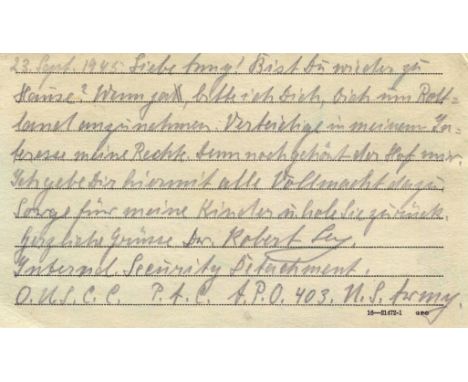 23. Sept. 1945 Liebe Inny! Bist Du wieder zu
Hause? Wenn ja, bitte ich Dich, Dich um Rott=
land anzunehmen. Verteidige in meinem In=
teresse meine Rechte. Denn noch gehört der Hof mir.
Ich gebe Dir hiermit alle Vollmacht dazu
Sorge für meine Kinder u hole Sie zurück.
Herzliche Grüsse Dr. Robert Ley.
Internal Security Detachment.
O.U.S.C.C. P.A.C. A.P.O. 403. U.S. Army.
16—21472-1 GPO